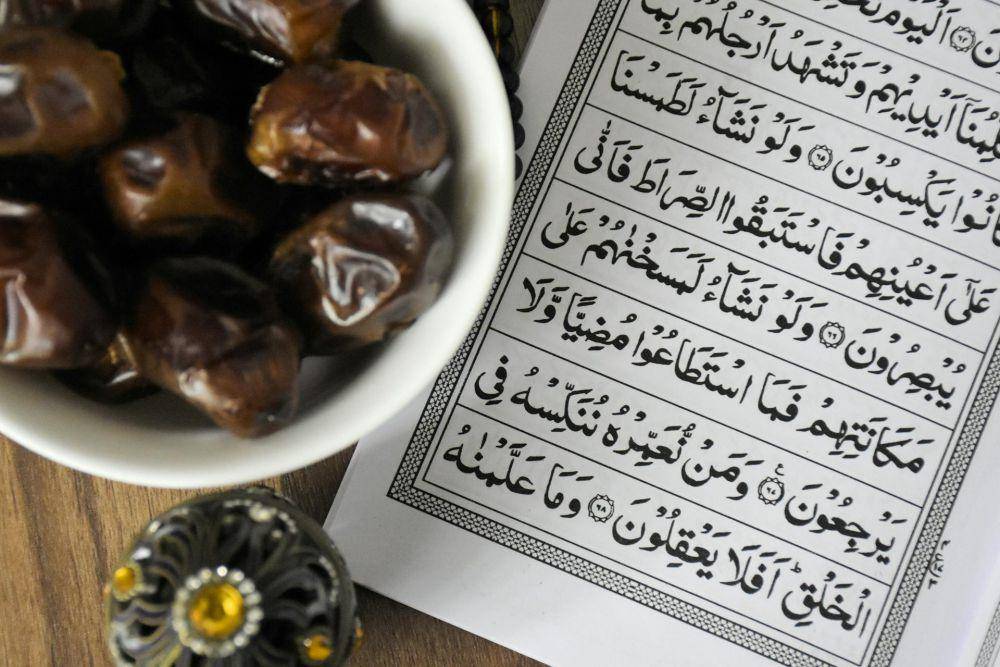 اَلْيَوْمَ
اَيْدِيْهِمْ وَتَشْهَدُ اَرْجُلُهُمْ بِمَا
كَانُوْا يَكْسِبُوْنَ ۝٦٥ وَلَوْ نَشَآءُ لَطَمَسْنَا
عَلٰٓى اَعْيُنِهِمْ فَاسْتَبَقُوا الصِّرَاطَ فَاَنّٰى
يُبْصِرُوْنَ ۝٦٦ وَلَوْ نَشَآءُ لَمَسَخْنٰهُمْ عَلٰى
مَكَانَتِهِمْ فَمَا اسْتَطَاعُوْا مُضِيًّا وَّلَا
يَرْجِعُوْنَ ۝٦٧ۧ وَمَنْ نُّعَمِّرْهُ نُنَكِّسْهُ فِى
الْخَلْقِ ؕ اَفَلَا يَعْقِلُوْنَ ۝٦٨ وَمَا عَلَّمْنٰهُ